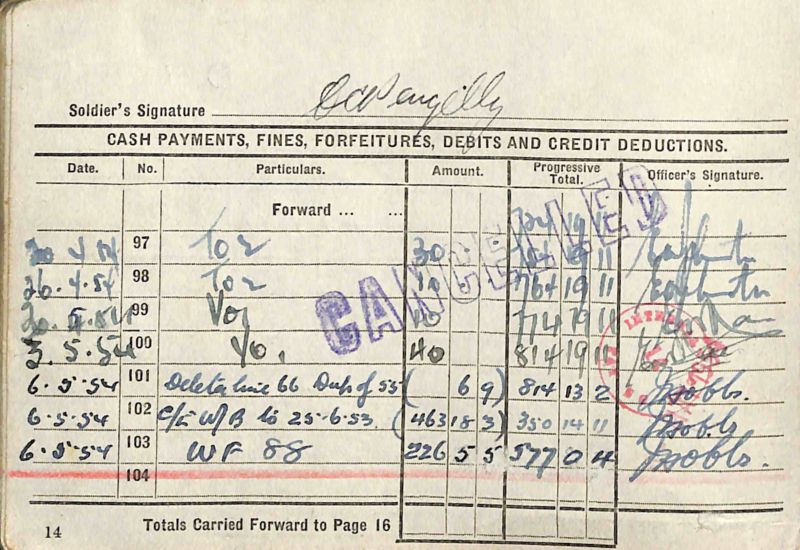 Soldier's Signature
CASH PAYMENTS, FINES, FORFEITURES, DEBITS AND CREDIT DEDUCTIONS.
Date. No. Particulars. Amount. Progressive Total. Officer's Signature.
Forward ... ... 724 19 11
97 30 19 11
26.4.54 98 10 764 19 11
99 774 19 11
3.5.54 100 40 814 19 11
6.5.54 101 Delete line 66 Dup of 55 ( 6 9) 814 13 2
6.5.54 102 W/B to 25-6-53. (463 18 3) 350 14 11
6.5.54 103 WF 88 226 5 5 577 0 4
104
CANCELLED
14 Totals Carried Forward to Page 16